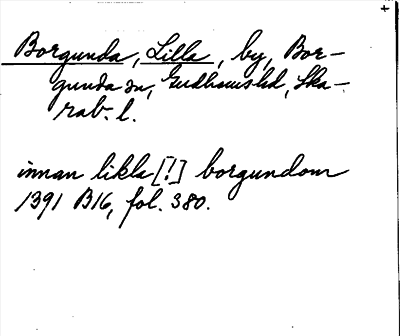 +
Borgunda, Lilla, by, Bor-
gunda sn, Gudhems hd, Ska-
rab. l.
innan likla [!] borgundom
1391 B16, fol. 380.